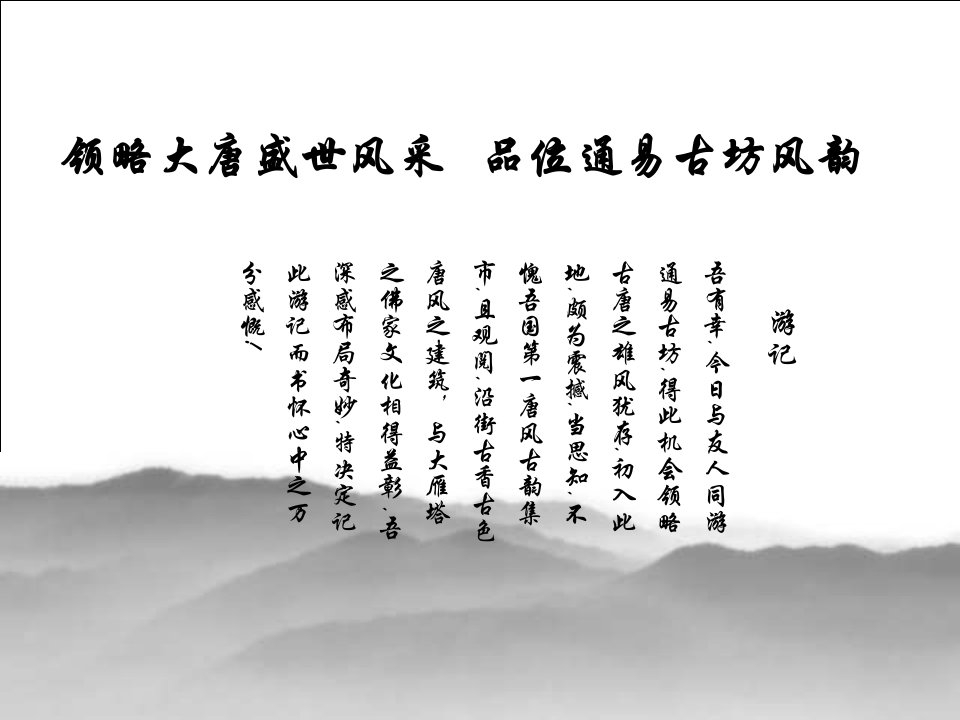 领略大唐盛世风采 品位通易古坊风韵
游记
吾有幸、今日与友人同游
通易古坊、得此机会领略
古唐之雄风犹存、初入此
地、颇为震撼、当思知、不
愧吾国第一唐风古韵集
市、且观阅、沿街古香古色
唐风之建筑，与大雁塔
之佛家文化相得益彰、吾
深感布局奇妙、特决定记
此游记而书怀心中之万
分感慨！